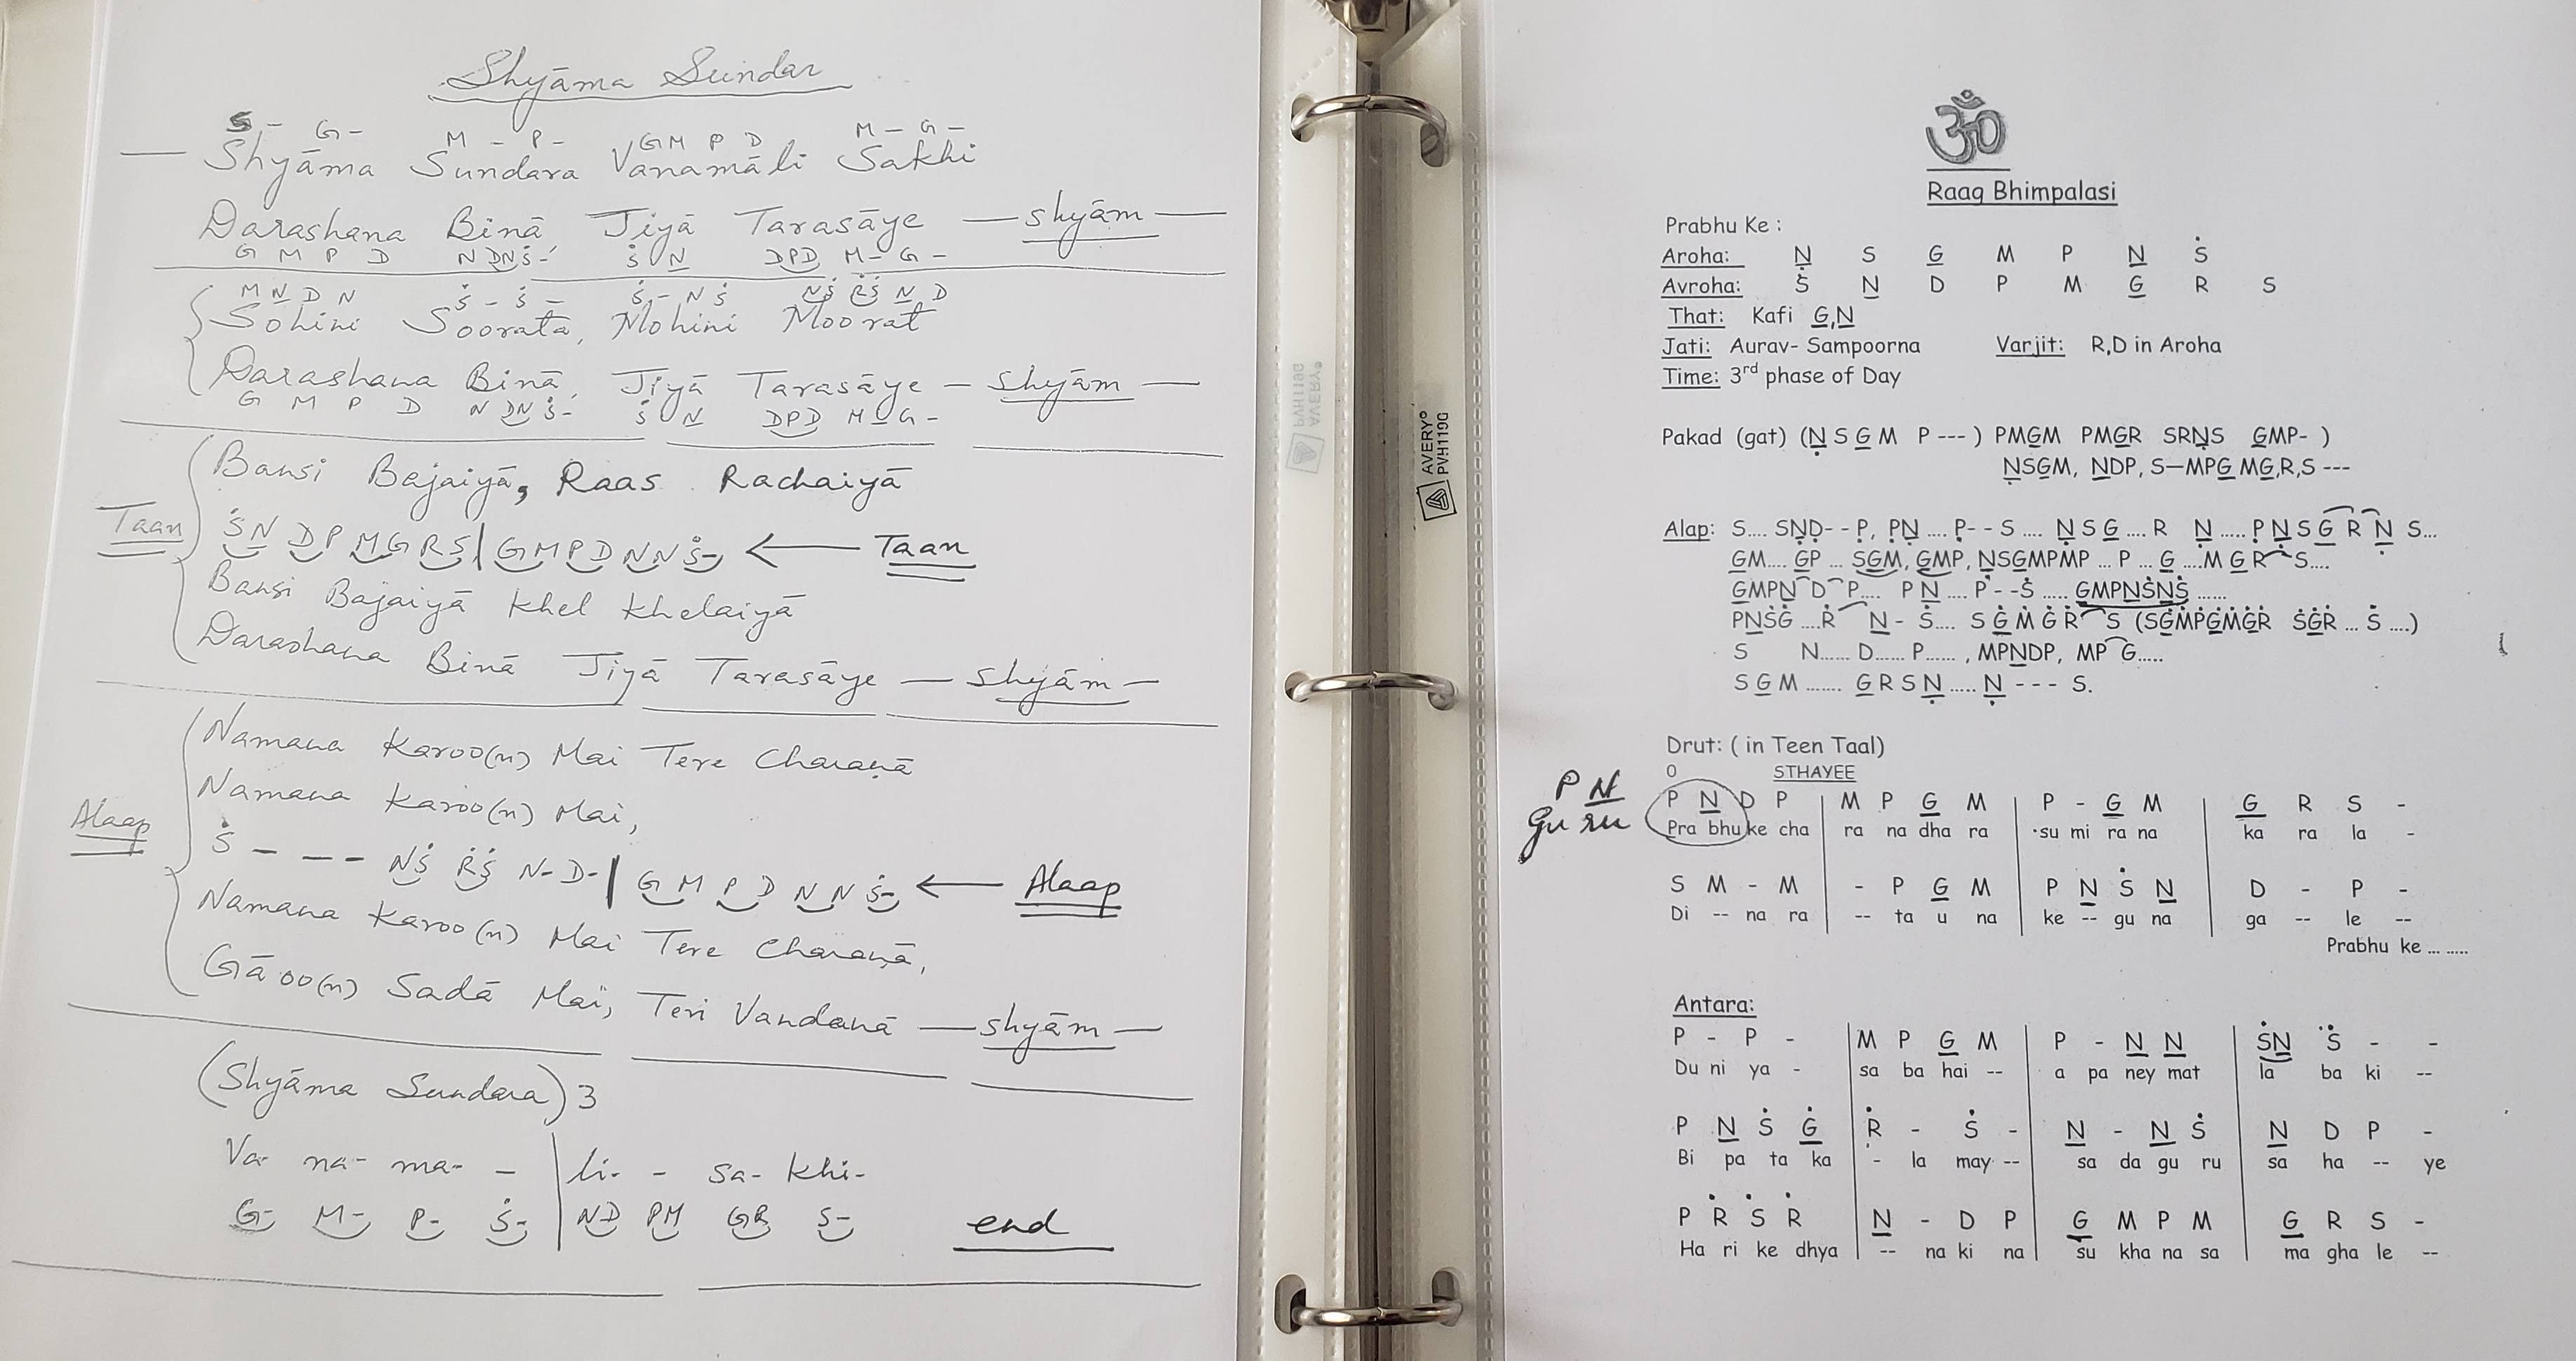 Shyāma Sundar
S - G - M - P - G M P D M - G -
— Shyāma Sundara Vanamāli Sakhi
Darashana Binā, Jiyā Tarasāye — shyām —
G M P D N DNṠ- Ṡ N̲ DPD M - G -
M N̲ D N Ṡ - Ṡ - Ṡ - N Ṡ NṠ ṘṠ N̲ D
Sohini Soorata, Mohini Moorat
Darashana Binā, Jiyā Tarasāye — shyām —
G M P D N DN Ṡ- Ṡ N̲ DPD M - G -
Bansi Bajaiyā, Raas Rachaiyā
Taan
ṠN̲ DP MG RS | GM PD NN Ṡ- ← Taan
Bansi Bajaiyā Khel Khelaiyā
Darashana Binā Jiyā Tarasāye — shyām —
Namana Karoo(n) Mai Tere Charaṇā
Namana Karoo(n) Mai,
Alaap
Ṡ - - - NṠ ṘṠ N- D- | GM PD NN Ṡ- ← Alaap
Namana Karoo(n) Mai Tere Charaṇā,
Gāoo(n) Sadā Mai, Teri Vandanā — shyām —
(Shyāma Sundara) 3
Va- na- ma- - | li- - sa- khi-
G- M- P- Ṡ- | ND PM GR S- end
AVERY®
PVH119G
ॐ
Raag Bhimpalasi
Prabhu Ke :
Aroha: Ṇ̲ S G̲ M P N̲ Ṡ
Avroha: Ṡ N̲ D P M G̲ R S
That: Kafi G̲,N̲
Jati: Aurav- Sampoorna Varjit: R,D in Aroha
Time: 3rd phase of Day
Pakad (gat) (Ṇ̲ S G̲ M P --- ) PMG̲M PMG̲R SRṆ̲S G̲MP- )
Ṇ̲SG̲M, N̲DP, S—MPG̲ MG̲,R,S ---
Alap: S.... SṆ̲Ḍ- - Ḥ, PṆ̲ .... P- - S .... Ṇ̲ S G̲ .... R Ṇ̲ ..... P Ṇ̲ S G̲ R Ṇ̲ S...
G̲M.... G̲P ... SG̲M, G̲MP, N̲SG̲MPMP ... P ... G̲ ....M G̲ R S....
G̲MPN̲ D P.... P N̲ .... P - -Ṡ ..... G̲MPN̲ṠN̲Ṡ ......
PN̲ṠĠ̲ ....Ṙ N̲ - Ṡ.... S Ġ̲ Ṁ Ġ̲ Ṙ S (SĠ̲ṀṖĠ̲ṀĠ̲Ṙ ṠĠ̲Ṙ ... Ṡ ....)
S N...... D...... P...... , MPN̲DP, MP G.....
S G̲ M ....... G̲ R S Ṇ̲ ..... Ṇ̲ - - - S.
Drut: ( in Teen Taal)
O STHAYEE
P N̲ P N̲ D P | M P G̲ M | P - G̲ M | G̲ R S -
Guru Pra bhu ke cha | ra na dha ra | su mi ra na | ka ra la -
S M - M | - P G̲ M | P N̲ Ṡ N̲ | D - P -
Di -- na ra | -- ta u na | ke -- gu na | ga -- le --
Prabhu ke ... .....
Antara:
P - P - | M P G̲ M | P - N̲ N̲ | ṠN̲ Ṡ - -
Du ni ya - | sa ba hai -- | a pa ney mat | la ba ki --
P N̲ Ṡ Ġ̲ | Ṙ - Ṡ - | N̲ - N̲ Ṡ | N̲ D P -
Bi pa ta ka | - la may -- | sa da gu ru | sa ha -- ye
P Ṙ Ṡ Ṙ | N̲ - D P | G̲ M P M | G̲ R S -
Ha ri ke dhya | -- na ki na | su kha na sa | ma gha le --